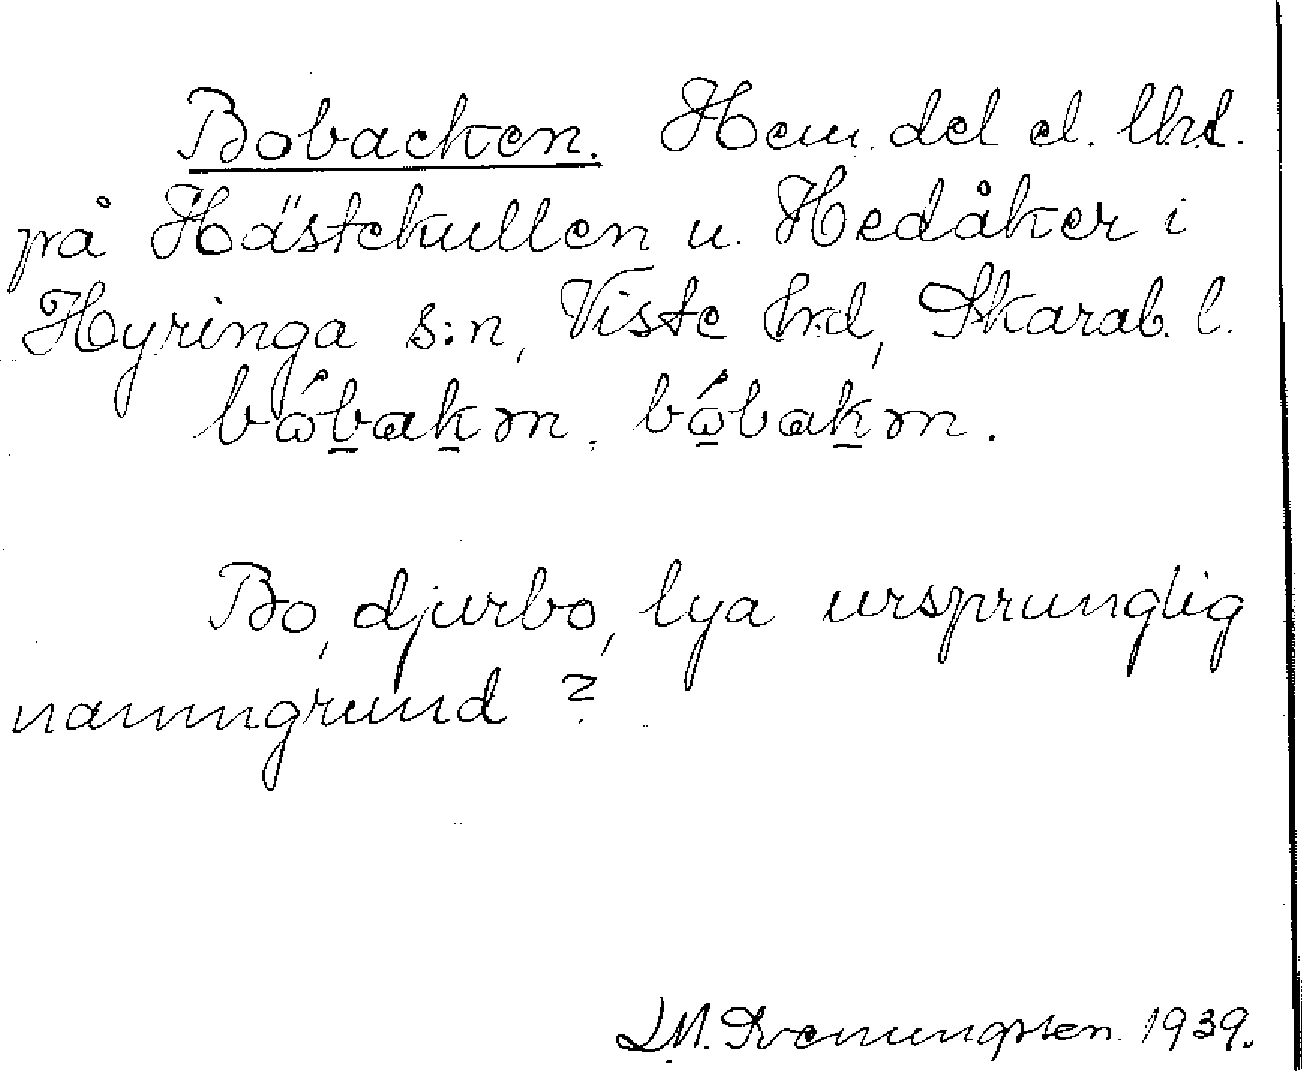 Bobacken. Hem. del el. lhd.
på Hästekullen u. Hedåker i
Hyringa s:n, Viste hrd, Skarab. l.
bώbakɘn, bώbakɘn.
Bo, djurbo, lya ursprunglig
namngrund?
D.M. Svenungsson 1939.